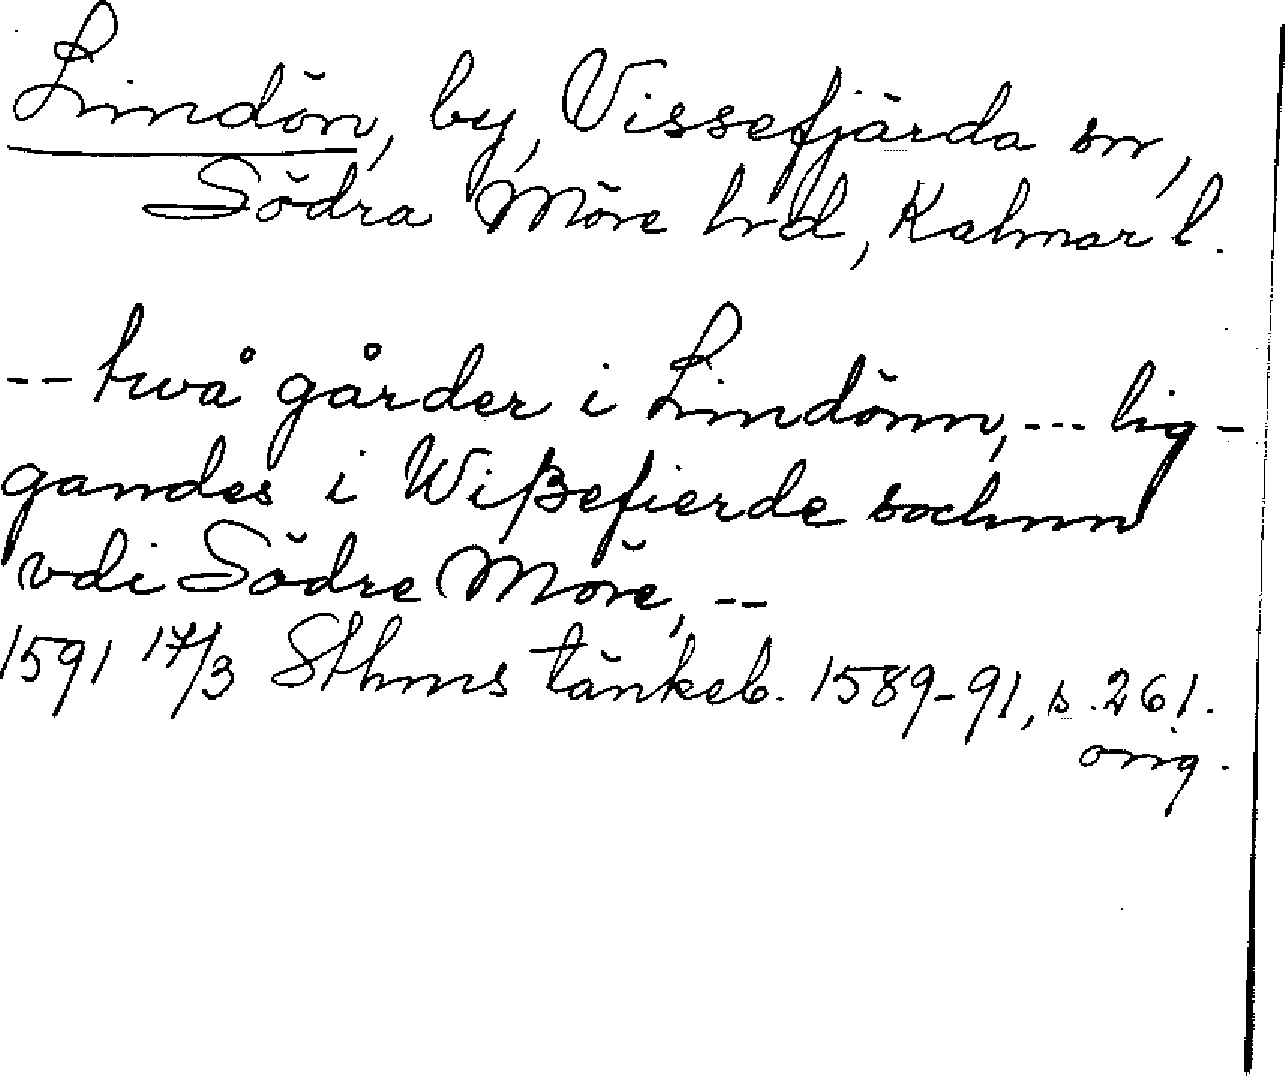 Lindön, by, Vissefjärda sn,
Södra Möre hrd, Kalmar l.
-- twå gårder i Lindönn, --- lig-
gandes i Wißefierde sochnn
vdi Södre Möre, --
1591 17/3 Sthms tänkeb. 1589-91, s. 261.
orig.